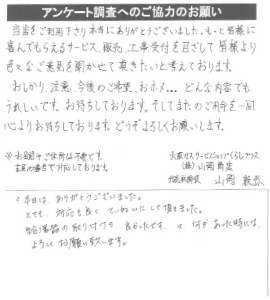 アンケート調査へのご協力のお願い
当店をご利用下さり本当にありがとうございました。もっと皆様に
喜んでもらえるサービス、販売、工事受付を目ざして皆様より
色々なご意見を聞かせて頂きたいと考えております。
おしかり、注意、今後のご希望、おホメ… どんな内容でも
うれしいです。お待ちしております。そしてまたのご用命を一同
心よりお待ちしております。どうぞよろしくお願いします。
※お名前やご住所は不要です。
で対応しております。
(株)山岡
山岡
本日は、ありがとうございました。
とても、対応も良く ていねいにして頂きました。
給湯器の取り付けも 良かったです。又 何かあった時には、
よろしくお願い致します。